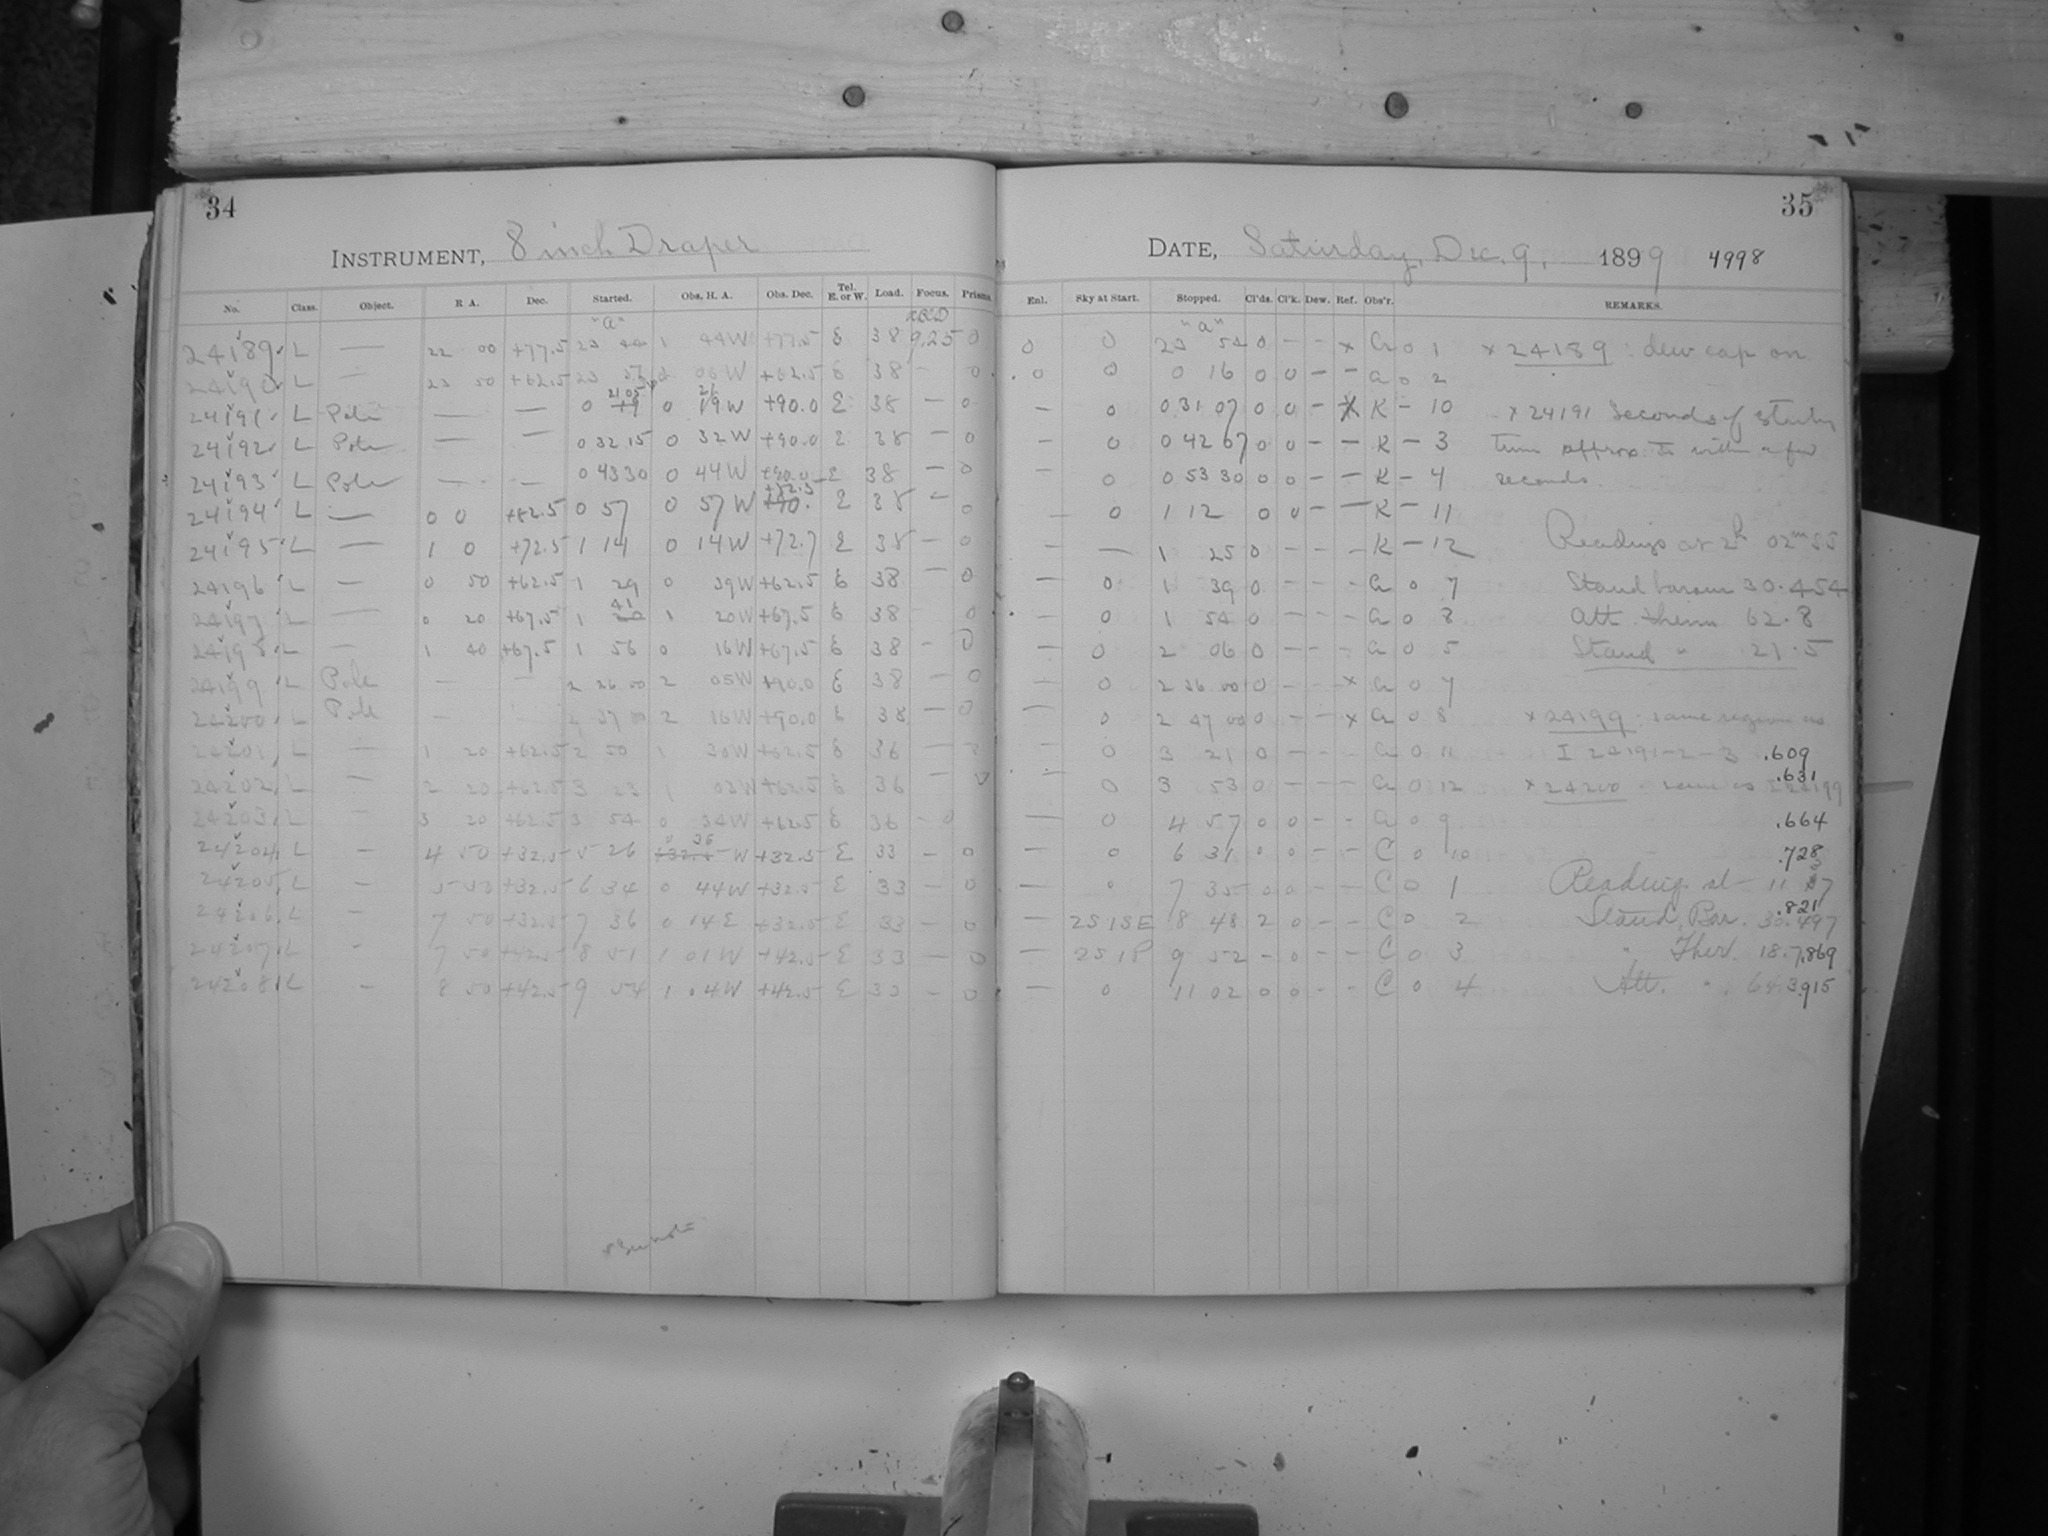 34
INSTRUMENT, 8 inch Draper
No. Class. Object. R A. Dec. Started. Obs. H. A. Obs. Dec. Tel. E. or W. Load. Focus. Prism.
"a"
24189 L — 22 00 +77.5 23 44 1 44 W +77.5 E 38 9.25 0
24190 L — 23 50 +62.5 23 +62.5 E 38 — 0
24191 L Pole — — 0 0 19 W +90.0 E 38 — 0
24192 L Pole — — 0 32 15 0 32 W +90.0 E 38 — 0
24193 L Pole — — 0 43 30 0 44 W +90.0 E 38 — 0
24194 L — 0 0 +82.5 0 57 0 57 W +82.5 E 38 — 0
24195 L — 1 0 +72.5 1 14 0 14 W +72.7 E 38 — 0
24196 L — 0 50 +62.5 1 29 0 39 W +62.5 E 38 — 0
24197 L — 0 20 +67.5 1 41 1 20 W +67.5 E 38 — 0
24198 L — 1 40 +67.5 1 56 0 16 W +67.5 E 38 — 0
24199 L Pole — — 2 26 00 2 05 W +90.0 E 38 — 0
24200 L Pole — — 2 37 00 2 16 W +90.0 E 38 — 0
24201 L — 1 20 +62.5 2 50 1 30 W +62.5 E 36 — 0
24202 L — 2 20 +62.5 3 23 1 03 W +62.5 E 36 — 0
24203 L — 3 20 +62.5 3 54 0 34 W +62.5 E 36 — 0
24204 L — 4 50 +32.5 5 26 0 36 W +32.5 E 33 — 0
24205 L — 5 50 +32.5 6 34 0 44 W +32.5 E 33 — 0
24206 L — 7 50 +32.5 7 36 0 14 E +32.5 E 33 — 0
24207 L — 7 50 +42.5 8 51 1 01 W +42.5 E 33 — 0
24208 L — 8 50 +42.5 9 54 1 04 W +42.5 E 33 — 0
35
DATE, Saturday, Dec. 9, 1899 4998
Enl. Sky at Start. Stopped. Cl'ds. Cl'k. Dew. Ref. Obs'r. REMARKS.
"a"
0 0 23 54 0 — — x a 0 1 x 24189 : dew cap on
0 0 0 16 0 0 — — a 0 2
— 0 0 31 07 0 0 — x K — 10 x 24191 Seconds of starting
— 0 0 42 07 0 0 — — K — 3 time approx. to within a few
— 0 0 53 30 0 0 — — K — 4 seconds.
— 0 1 12 0 0 — — K — 11
— — 1 25 0 — — — K — 12 Readings at 2h 02m
— 0 1 39 0 — — — a 0 7 Stand barom 30.454
— 0 1 54 0 — — — a 0 8 Att. therm 62.8
— 0 2 06 0 — — — a 0 5 Stand " 21.5
— 0 2 36 00 0 — — x a 0 7
— 0 2 47 00 0 — — x a 0 8 x 24199 : same region as
— 0 3 21 0 — — — a 0 11 I 24191-2-3 .609
.631
— 0 3 53 0 — — — a 0 12 x 24200 same as I 24199
— 0 4 57 0 0 — — a 0 9 .664
— 0 6 31 0 0 — — C 0 10 .728
— 0 7 35 0 0 — — C 0 1 Reading at 11
.821
— 2S1SE 8 48 2 0 — — C 0 2 Stand. Bar. 30.497
— 2S1P 9 52 — 0 — — C 0 3 " Ther. 18.7 .869
— 0 11 02 0 0 — — C 0 4 Att. " 64.3 .915